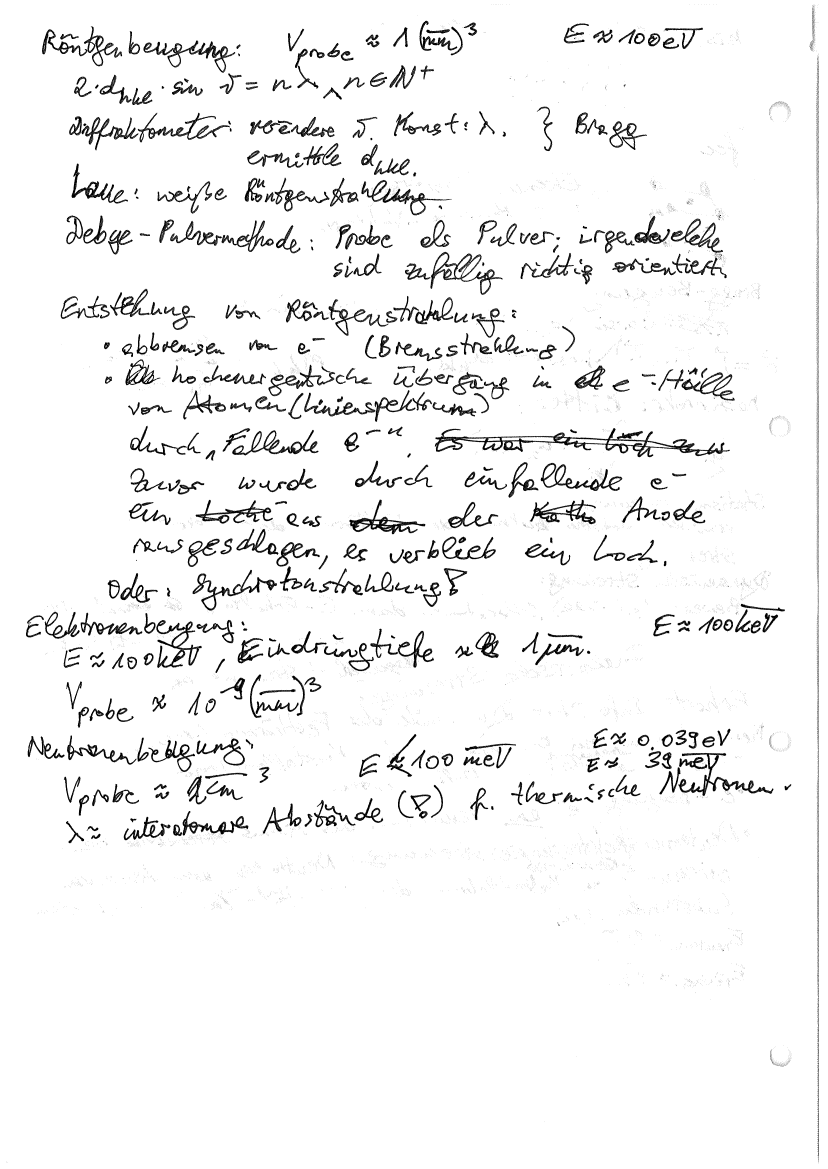 Röntgenbeugung: V_probe ≈ 1 (mm)³ E ≈ 100 eV
2·d_hkl · sin ϑ = n λ ∧ n ∈ N⁺
Diffraktometer: verändere ϑ. Konst: λ. } Bragg
ermittle d_hkl.
Laue: weiße Röntgenstrahlung.
Debye-Pulvermethode: Probe als Pulver; irgendwelche
sind zufällig richtig orientiert.
Entstehung von Röntgenstrahlung:
• abbremsen von e⁻ (Bremsstrahlung)
• hochenergetische Übergang in e⁻-Hülle
von Atomen (Linienspektrum)
durch „Fallende e⁻“. Es war ein Loch
Zuvor wurde durch einfallende e⁻
ein Loche aus dem der Katho Anode
rausgeschlagen, es verblieb ein Loch.
Oder: Synchrotonstrahlung!
Elektronenbeugung: E ≈ 100 keV
E ≈ 100 keV, Eindringtiefe ≈ 1 µm.
V_probe ≈ 10⁻⁹ (mm)³
Neutronenbeugung: E ≲ 100 meV E ≈ 0.039 eV
E ≈ 39 meV
V_probe ≈ cm³
λ ≈ interatomare Abstände (!) f. thermische Neutronen.